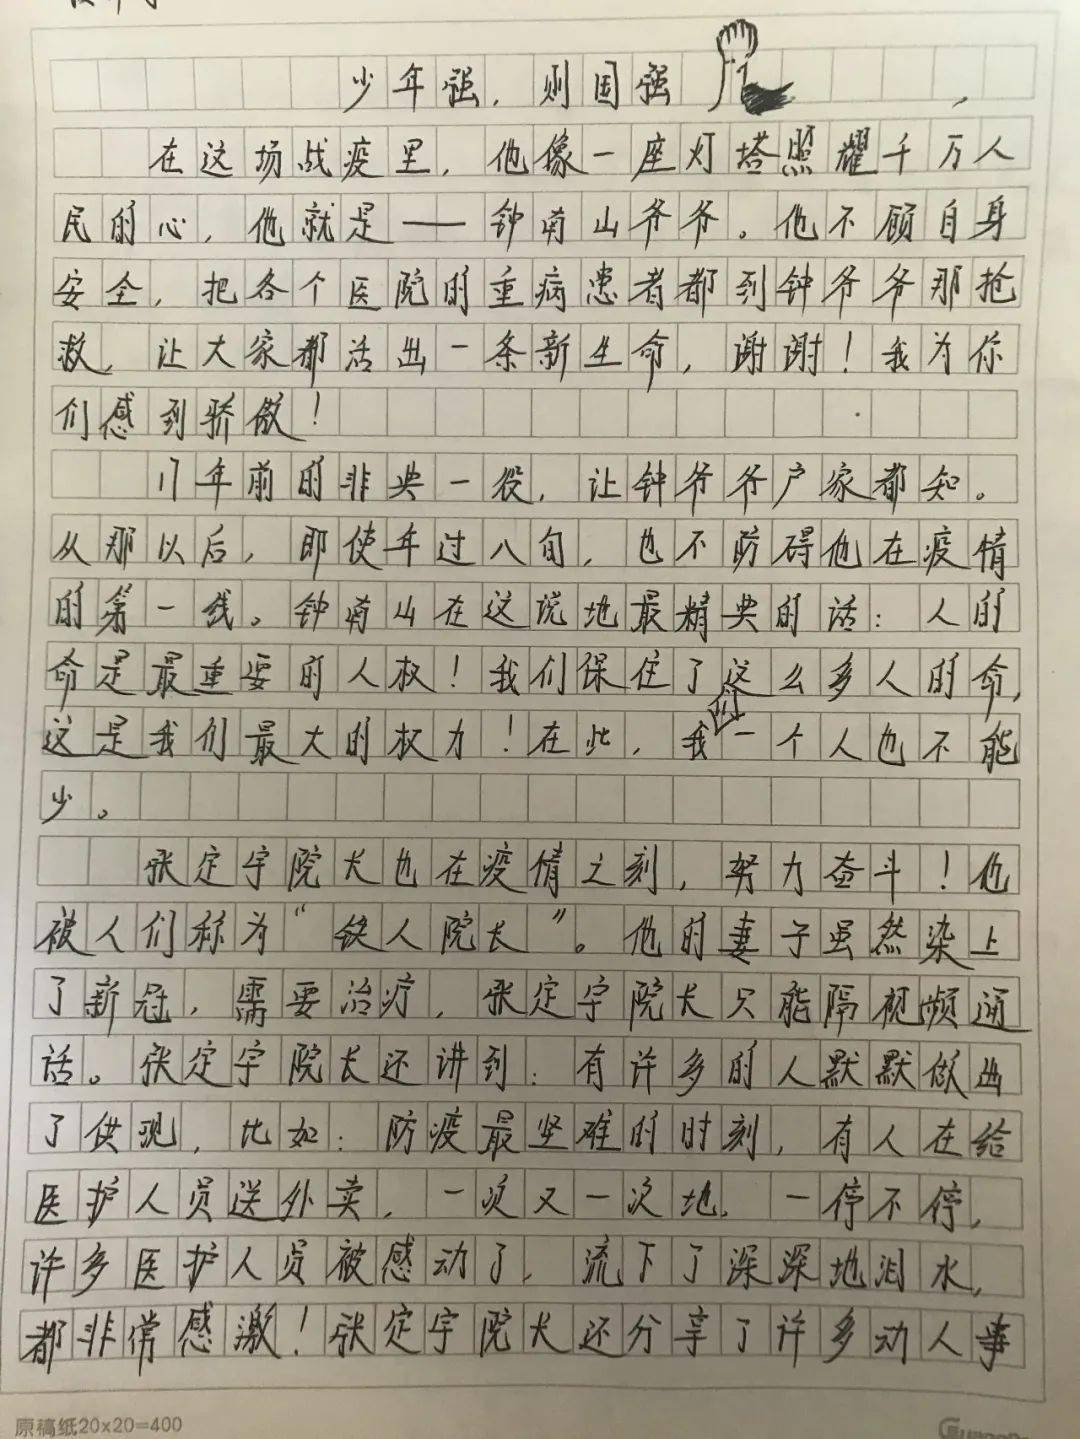 少年强，则国强
在这场战疫里，他像一座灯塔照耀千万人
民的心，他就是——钟南山爷爷。他不顾自身
安全，把各个医院的重病患者都到钟爷爷那抢
救，让大家都活出一条新生命，谢谢！我为你
们感到骄傲！
17年前的非典一役，让钟爷爷户家都知。
从那以后，即使年过八旬，也不防碍他在疫情
的第一线。钟南山在这说地最精典的话：人的
命是最重要的人权！我们保住了这么多人的命，
这是我们最大的权力！在此，我们一个人也不能
少。
张定宇院长也在疫情之刻，努力奋斗！他
被人们称为“铁人院长”。他的妻子虽然染上
了新冠，需要治疗，张定宇院长只能隔视频通
话。张定宇院长还讲到：有许多的人默默做出
了供现，比如：防疫最坚难的时刻，有人在给
医护人员送外卖，一次又一次地，一停不停，
许多医护人员被感动了，流下了深深地泪水，
都非常感激！张定宇院长还分享了许多动人事
原稿纸20×20=400